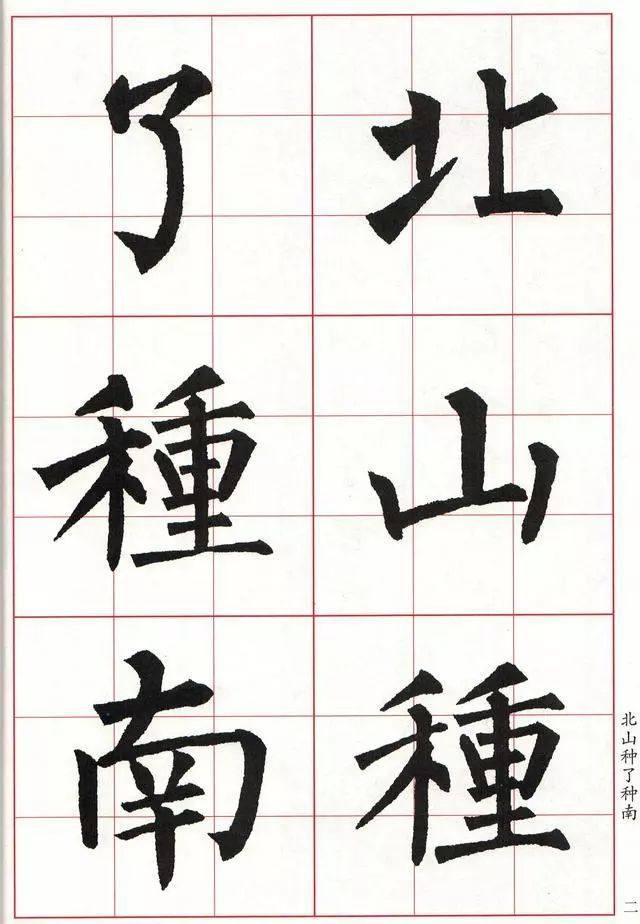 北山種
了種南
北山种了种南
二